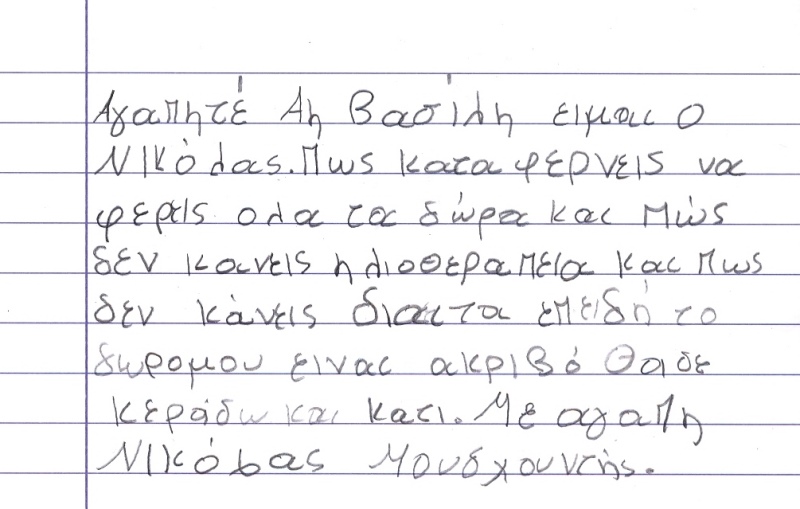 Αγαπητέ Αη Βασίλη ειμαι ο
Νικόλας. Πως κατα φερνεις να
φερεις ολα τα δώρα και πώς
δεν κανεις ηλιοθεραπεια και πως
δεν κάνεις διαιτα επειδή το
δωρομου ειναι ακριβό θα δε
κεράδω και κατι. Με αγαπη
Νικόλας